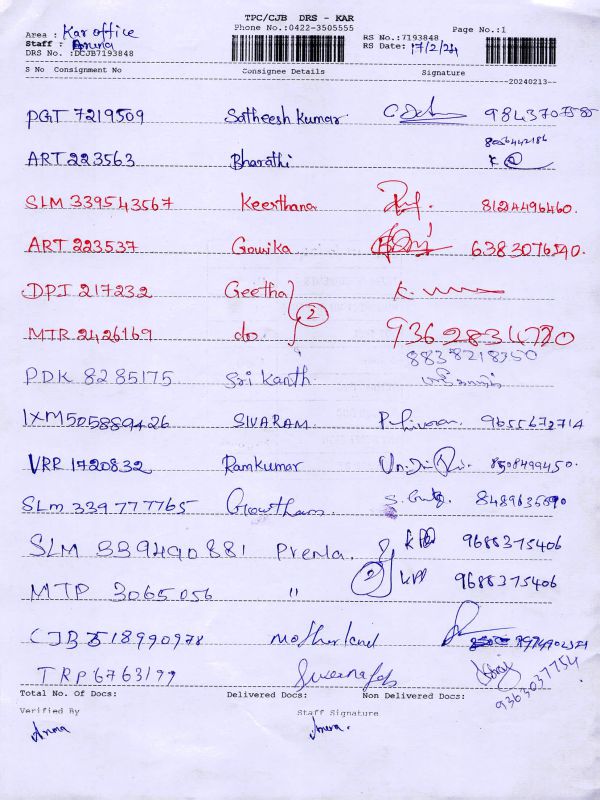 TPC/CJB DRS - KAR
Phone No.:0422-3505555
Area : Kar office
Staff : Aruna
DRS No. :DCJB7193848
RS No.:7193848
RS Date: 17/2/24
Page No.:1
S No Consignment No Consignee Details Signature
20240213
PGT 7219509 Satheesh kumar 9843707585
ART 223563 Bharathi 8056442186
SLM 339543567 Keerthana 8124496460.
ART 223537 Gowika 6383076590.
DPI 217232 Geetha K. 2
MTR 2426169 do 9362834720
8838218350
PDK 8285175 Sri Kanth
IXM505889426 SIVARAM. 9655672714
VRR 1720832 Ramkumar 8508499450.
SLM 339777765 Gowtham 8489636890
SLM 339490881 Prema. 9688375406
MTP 3065056 " 2 9688375406
CJB 518990978 Motherland
TRP6763199 9363037754
Total No. Of Docs: Delivered Docs: Non Delivered Docs:
Verified By Staff Signature
Aruna Aruna.